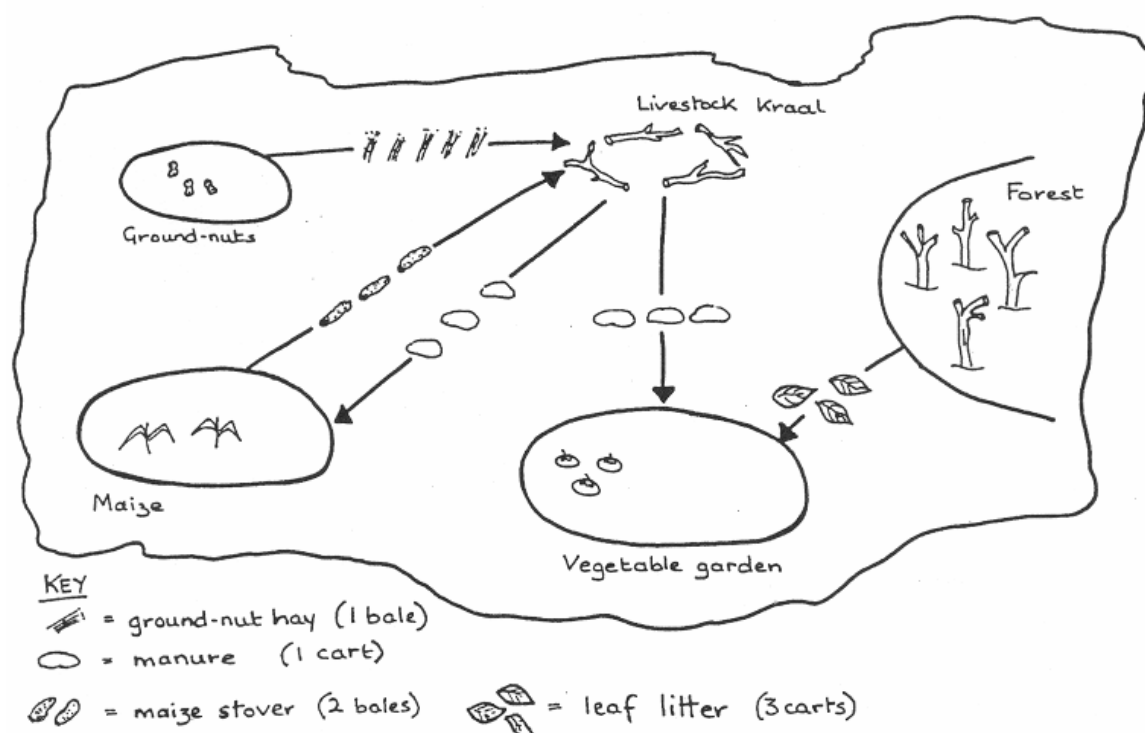 Livestock Kraal
Forest
Ground-nuts
Maize
Vegetable garden
KEY
= ground-nut hay (1 bale)
= manure (1 cart)
= maize stover (2 bales)
= leaf litter (3 carts)